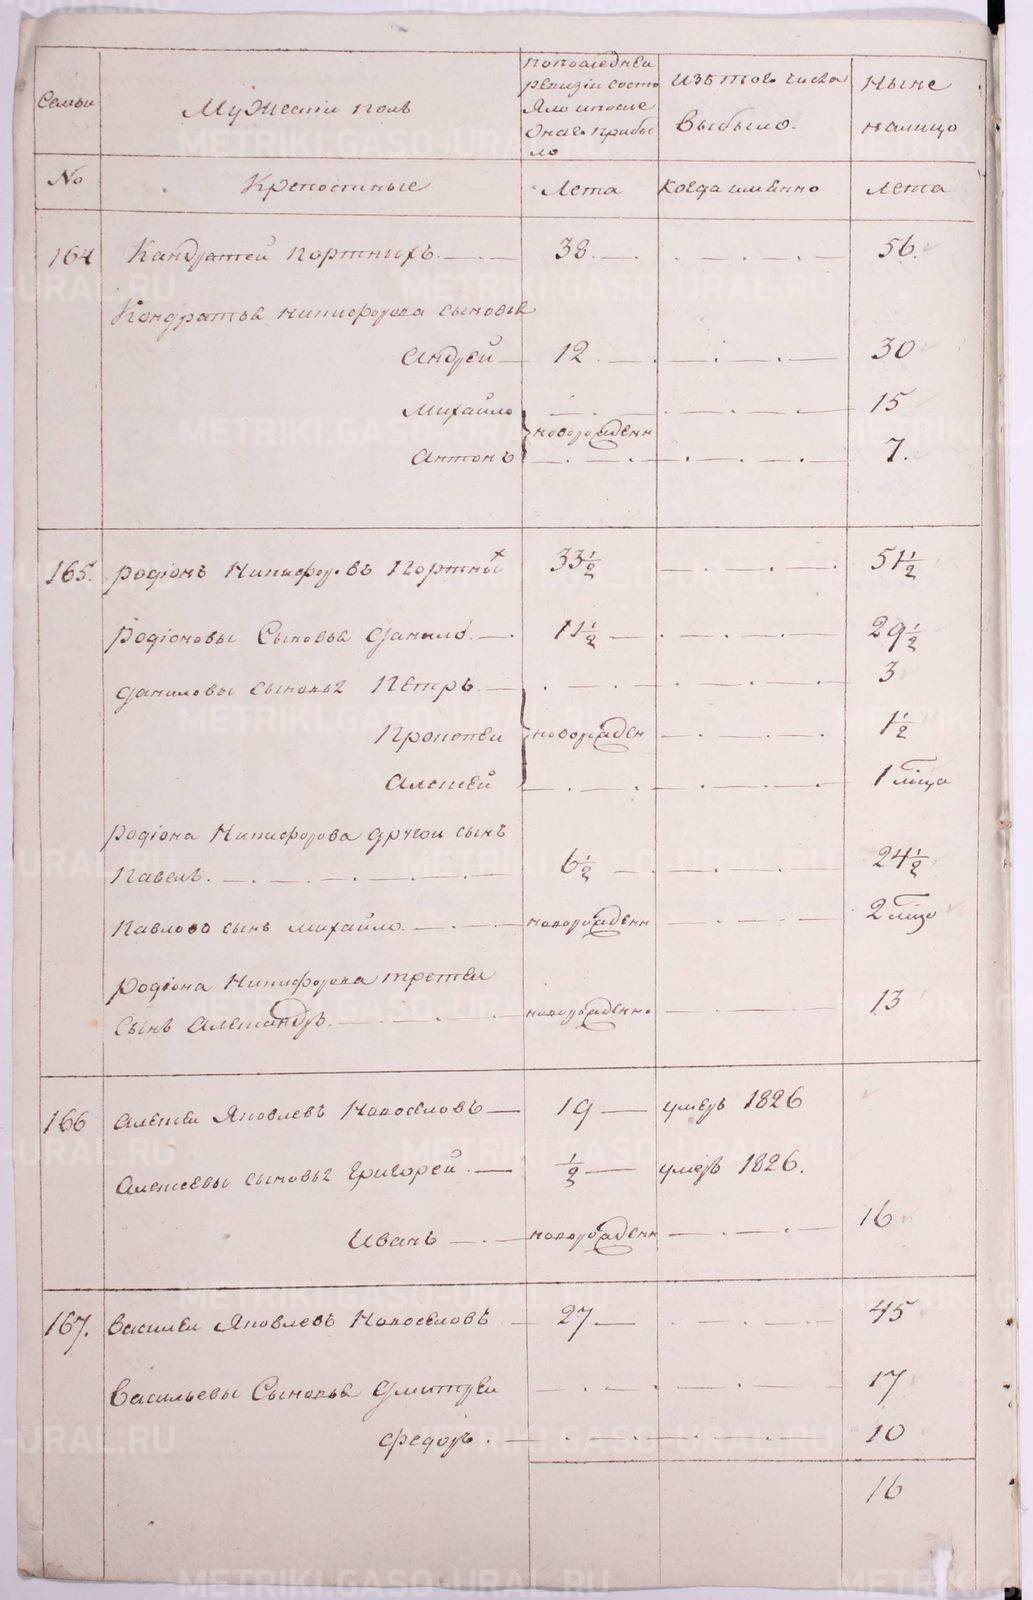 Семьи
Мужескiй полъ
по последней
ревизiи состо
яло и после
оной прибы
ло
изъ того числа
выбыло.
Ныне
налицо
No
Крепостные
Лета
когда имянно
лета
164 Кандратей Портныхъ. 38. 56.
Кондратья Никифорова сыновья
Андрей 12 30
Михайло 15
новорожденн
Антонъ 7.
165. Родiонъ Никифоровъ Портных 33 1/2 51 1/2
Родiоновы Сыновья Данило 11 1/2 29 1/2
Даниловы сыновья Петръ 3
Прокопеи новорожден 1 1/2
Алексей 1 мца
Родiона Никифорова другои сынъ
Павелъ. 6 1/2 24 1/2
Павлово сынъ Михайло новорожденн 2 мцо
Родiона Никифорова третеи
Сынъ Александръ новорожденно 13
166 Алексеи Яковлевъ Новоселовъ 19 умеръ 1826
Алексеевы сыновья Григорей 1/2 умеръ 1826.
Иванъ новорожденн 16
167. Василеи Яковлевъ Новоселовъ 27 45
Васильевы Сыновья Дмитреи 17
Федоръ 10
16
METRIKI.GASO-URAL.RU